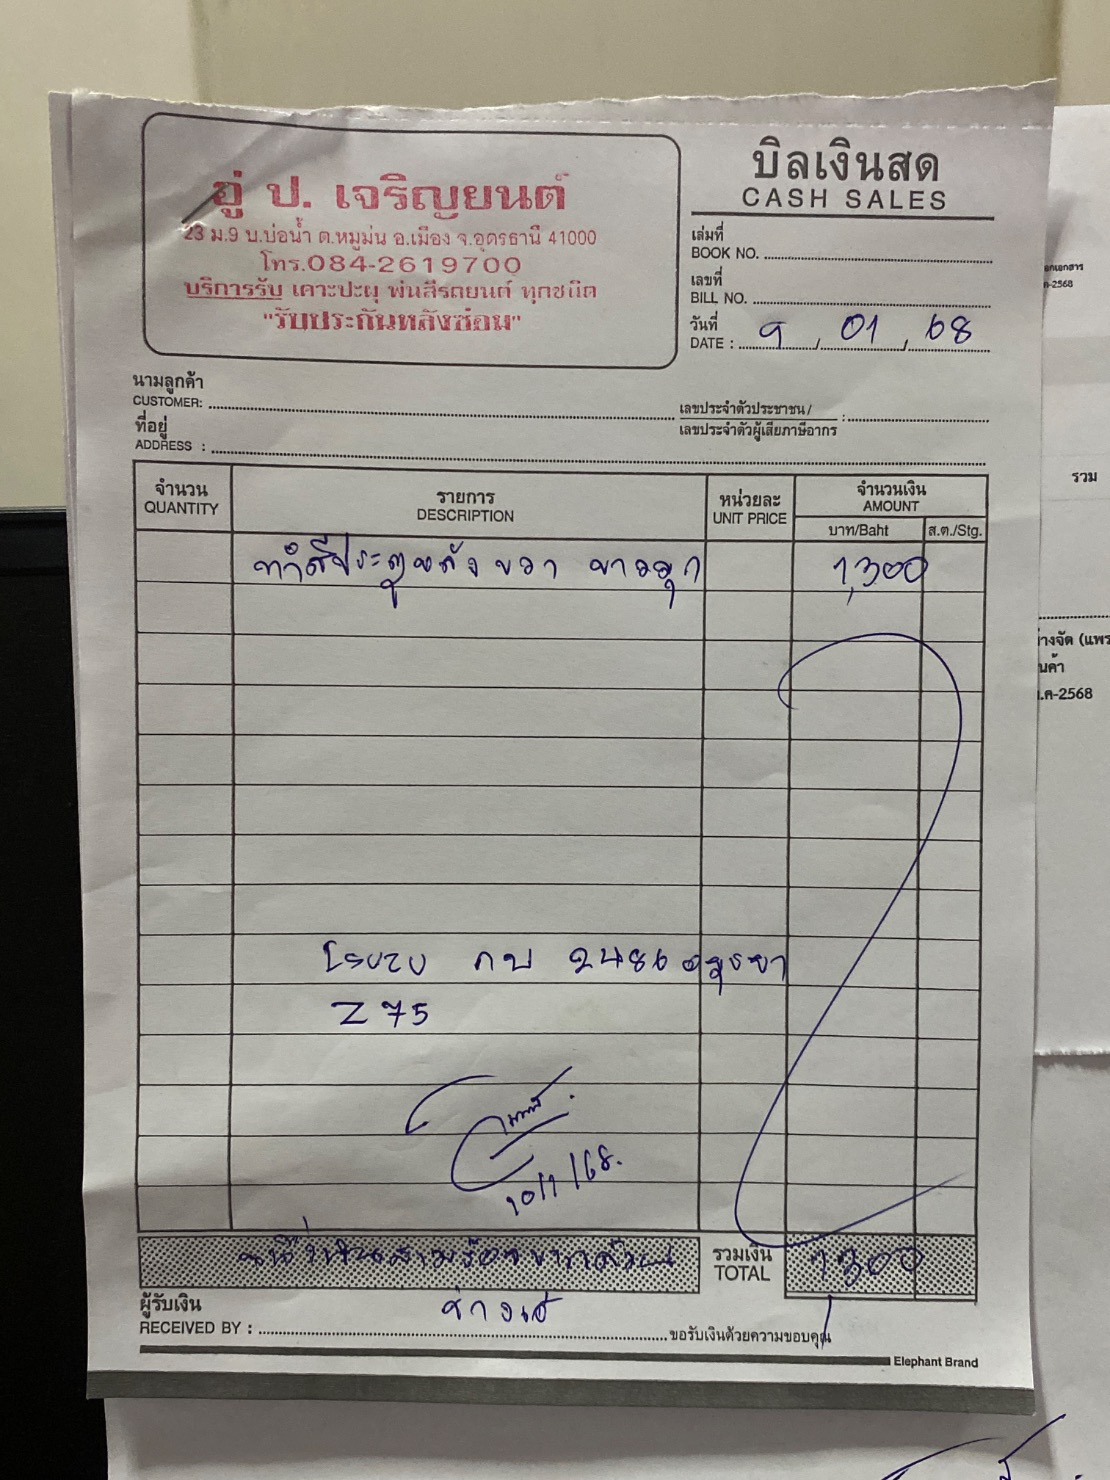 อู่ ป. เจริญยนต์
23 ม.9 บ.บ่อน้ำ ต.หมูม่น อ.เมือง จ.อุดรธานี 41000
โทร.084-2619700
บริการรับ เคาะปะผุ พ่นสีรถยนต์ ทุกชนิด
"รับประกันหลังซ่อม"
บิลเงินสด
CASH SALES
เล่มที่
BOOK NO.
เลขที่
BILL NO.
วันที่
DATE : 9 / 01 / 68
นามลูกค้า
CUSTOMER:
เลขประจำตัวประชาชน/
เลขประจำตัวผู้เสียภาษีอากร :
ที่อยู่
ADDRESS :
จำนวน
QUANTITY
รายการ
DESCRIPTION
หน่วยละ
UNIT PRICE
จำนวนเงิน
AMOUNT
บาท/Baht ส.ต./Stg.
ทำสีประตูหลัง ขวา ขาวมุก 1,300
กบ 2486 อยุธยา
Z 75
10/1/68.
หนึ่งพันสามร้อยบาทถ้วน
รวมเงิน
TOTAL
1,300
ผู้รับเงิน
RECEIVED BY :
ขอรับเงินด้วยความขอบคุณ
Elephant Brand
-2568
รวม
(แพร
นค้า
.ค-2568